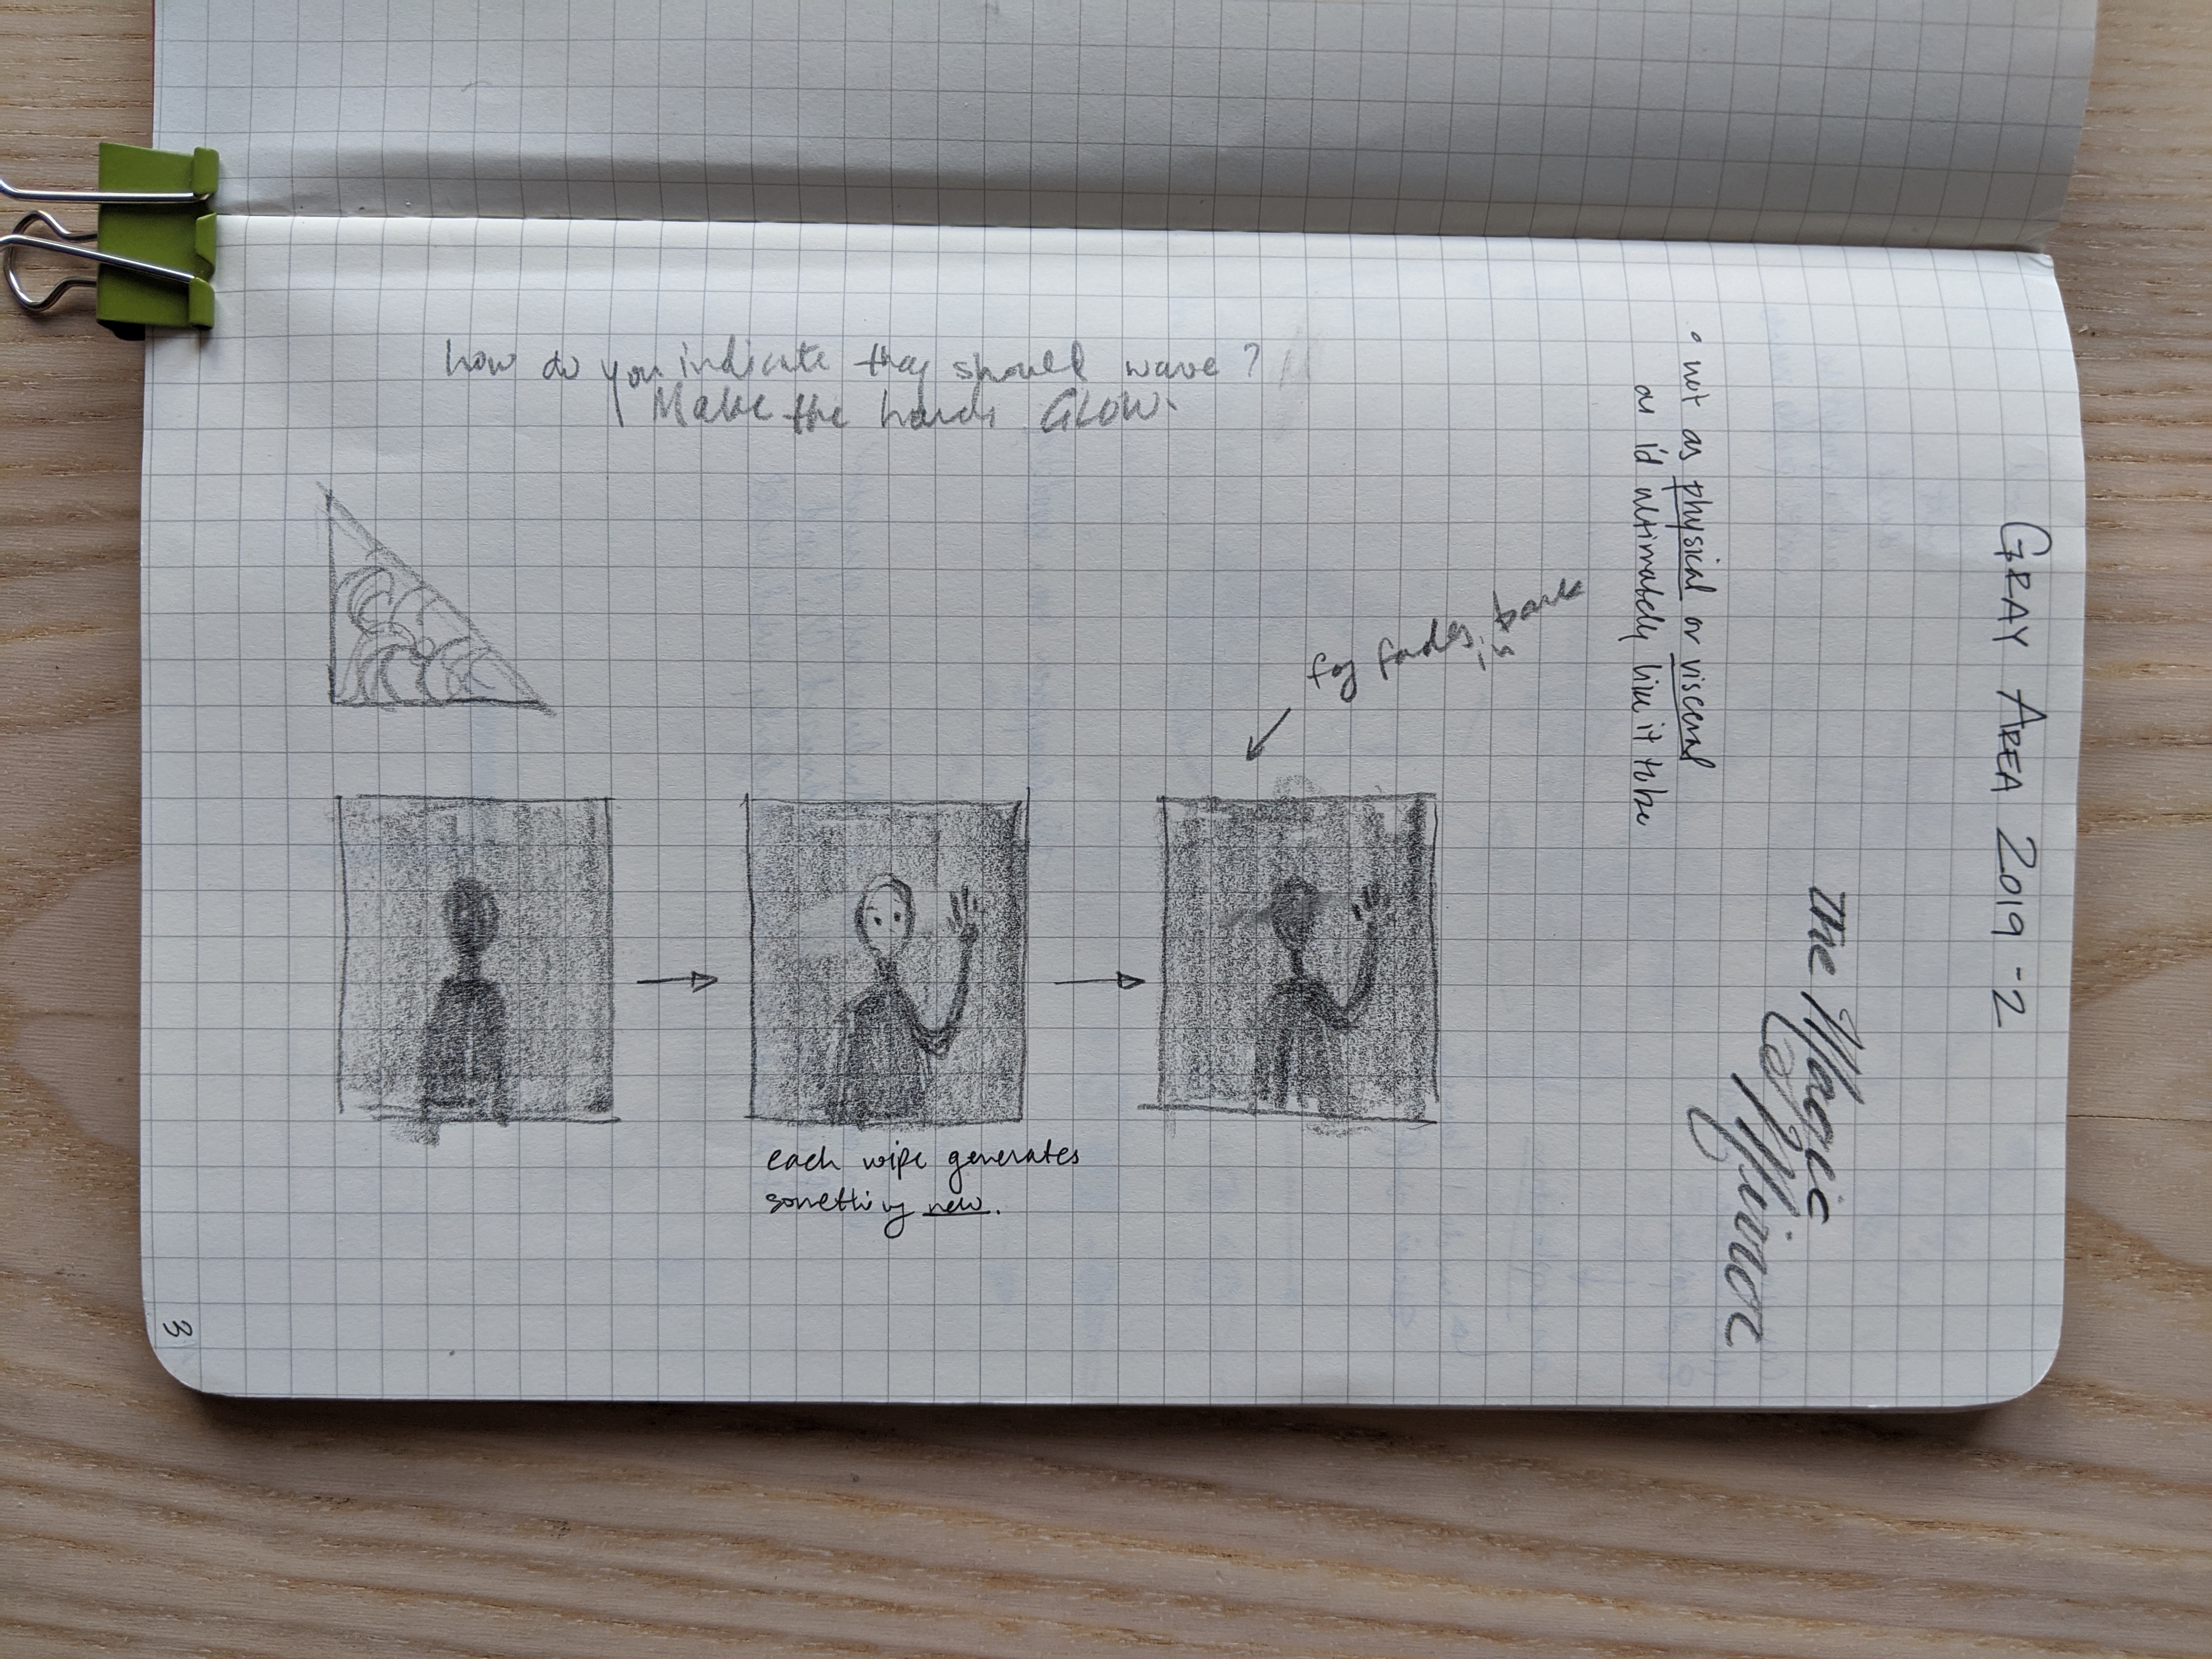 GRAY AREA 2019 - 2
The Magic
Mirror
• not as physical or visceral
as i'd ultimately like it to be
how do you indicate they should wave?
Make the hands GLOW.
fog fades back
in
each wipe generates
something new.
3